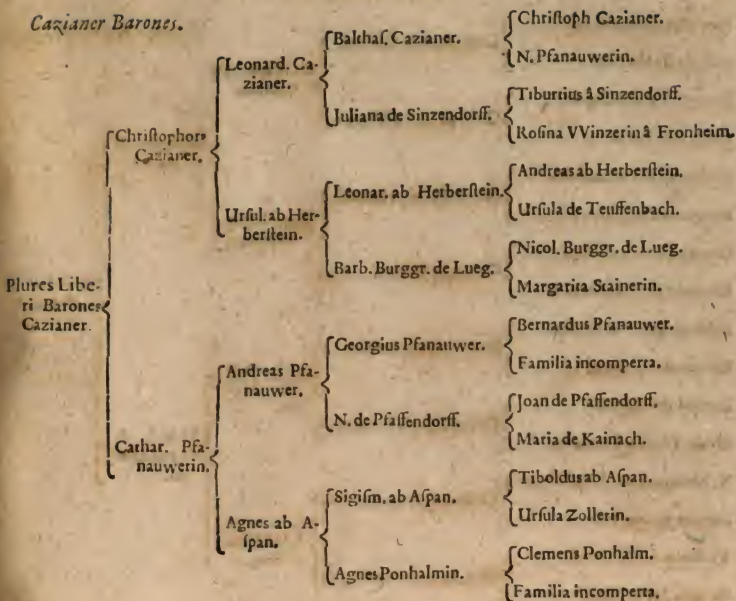 Cazianer Barones.
Plures Libe-
ri Barones
Cazianer.
Chriſtophor⁹
Cazianer.
Cathar. Pfa-
nauwerin.
Leonard. Ca-
zianer.
Urſul. ab Her-
berſtein.
Andreas Pfa-
nauwer.
Agnes ab A-
ſpan.
Balthaſ. Cazianer.
Juliana de Sinzendorff.
Leonar. ab Herberſtein.
Barb. Burggr. de Lueg.
Georgius Pfanauwer.
N. de Pfaffendorff.
Sigiſm. ab Aſpan.
Agnes Ponhalmin.
Chriſtoph Cazianer.
N. Pfanauwerin.
Tiburtius â Sinzendorff.
Roſina VVinzerin â Fronheim.
Andreas ab Herberſtein.
Urſula de Teuffenbach.
Nicol. Burggr. de Lueg.
Margarita Stainerin.
Bernardus Pfanauwer.
Familia incomperta.
Joan de Pfaffendorff.
Maria de Kainach.
Tiboldus ab Aſpan.
Urſula Zollerin.
Clemens Ponhalm.
Familia incomperta.